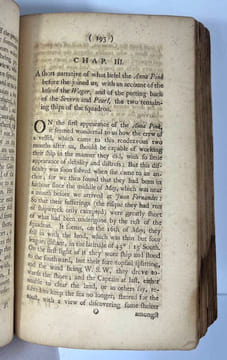 ( 193 )
CHAP. III.
A short narrative of what befel the Anna Pink
before she joined us, with an account of the
loss of the Wager, and of the putting back
of the Severn and Pearl, the two remain-
ing ships of the squadron.
ON the first appearance of the Anna Pink,
it seemed wonderful to us how the crew of
a vessel, which came to this rendezvous two
months after us, should be capable of working
their ship in the manner they did, with so little
appearance of debility and distress: But this dif-
ficulty was soon solved when she came to an an-
chor; for we then found that they had been in
harbour since the middle of May, which was near
a month before we arrived at Juan Fernandes:
So that their sufferings (the risque they had run
of shipwreck only excepted) were greatly short
of what had been undergone by the rest of the
squadron. It seems, on the 16th of May, they
fell in with the land, which was then but four
leagues distant, in the latitude of 45° : 15' South.
On the first sight of it they wore ship and stood
to the southward, but their fore topsail splitting,
and the wind being W. S. W, they drove to-
wards the shore; and the Captain at last, either
unable to clear the land, or as others say, re-
solved to keep the sea no longer, steered for the
coast, with a view of discovering some shelter
O
amongst